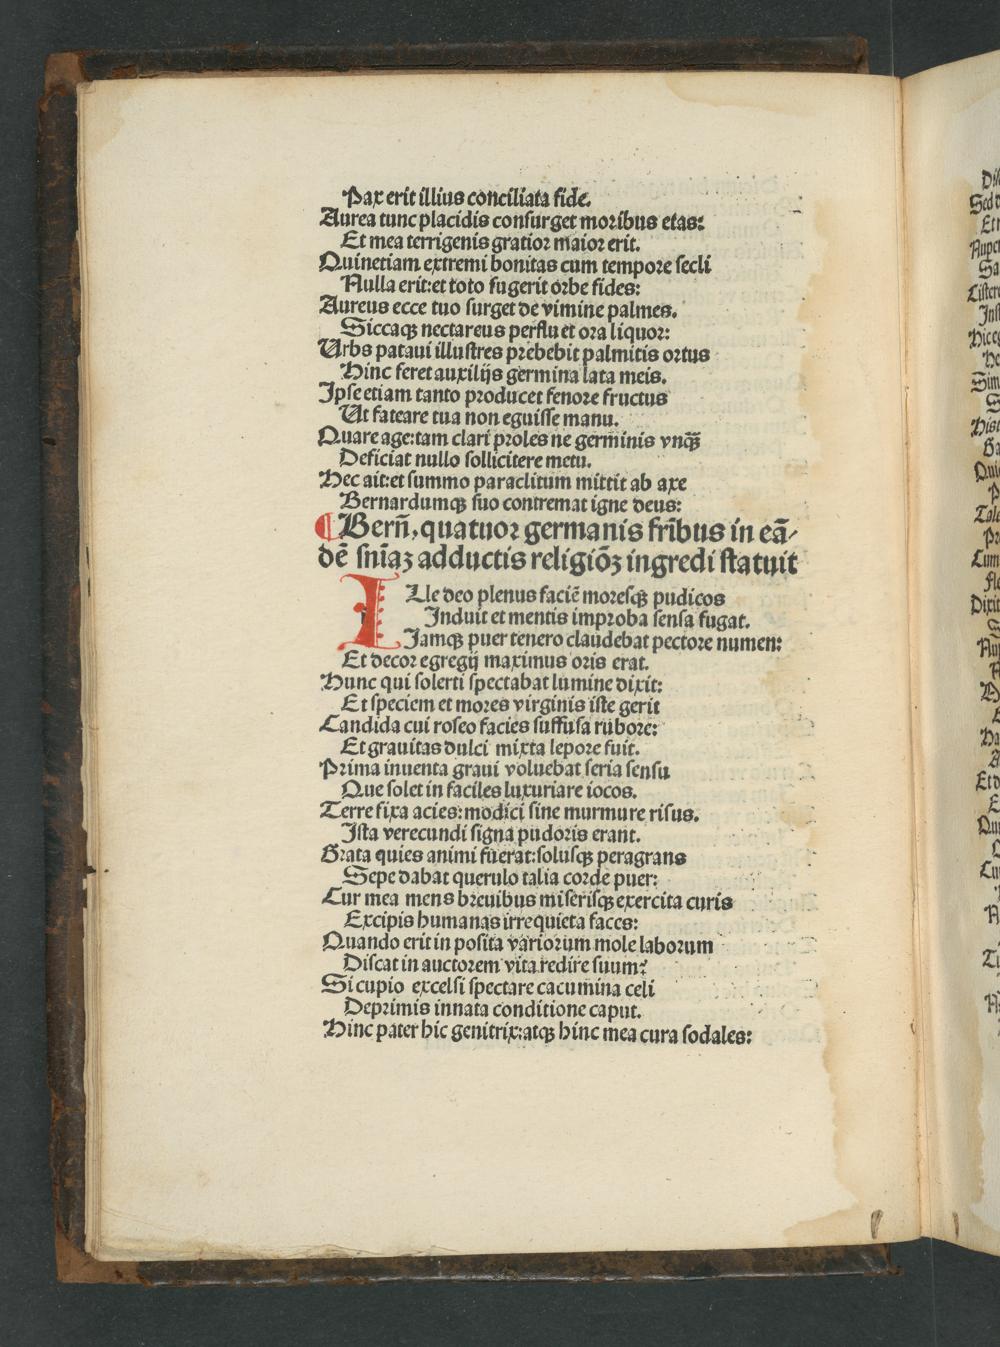 Pax erit illius conciliata fide.
Aurea tunc placidis consurget moribus etas:
Et mea terrigenis gratior maior erit.
Quinetiam extremi bonitas cum tempore secli
Nulla erit: et toto fugerit orbe fides:
Aureus ecce tuo surget de vimine palmes.
Siccaqꝫ nectareus perfluet ora liquor:
Urbs pataui illustres prebebit palmitis ortus
Hinc feret auxilijs germina lata meis.
Ipse etiam tanto producet fenore fructus
Ut fateare tua non eguisse manu.
Quare age: tam clari proles ne germinis vnqꝫ̄
Deficiat nullo sollicitere metu.
Hec ait: et summo paraclitum mittit ab axe
Bernardumqꝫ suo contremat igne deus:
¶ Bern̄, quatuor germanis fr̄ibus in eā⸗
dē sn̄iaꝫ adductis religiōꝫ ingredi statuit
ILle deo plenus faciē moresqꝫ pudicos
Induit et mentis improba sensa fugat.
Jamqꝫ puer tenero claudebat pectore numen:
Et decor egregij maximus oris erat.
Hunc qui solerti spectabat lumine dixit:
Et speciem et mores virginis iste gerit
Candida cui roseo facies suffusa rubore:
Et grauitas dulci mixta lepore fuit.
Prima inuenta graui voluebat seria sensu
Que solet in faciles luxuriare iocos.
Terre fixa acies: modici sine murmure risus.
Ista verecundi signa pudoris erant.
Grata quies animi fuerat: solusqꝫ peragrans
Sepe dabat querulo talia corde puer:
Cur mea mens breuibus miserisqꝫ exercita curis
Excipis humanas irrequieta faces:
Quando erit in posita variorum mole laborum
Discat in auctorem vita redire suum?
Si cupio excelsi spectare cacumina celi
Deprimis innata conditione caput.
Hinc pater hic genitrix: atqꝫ hinc mea cura sodales: